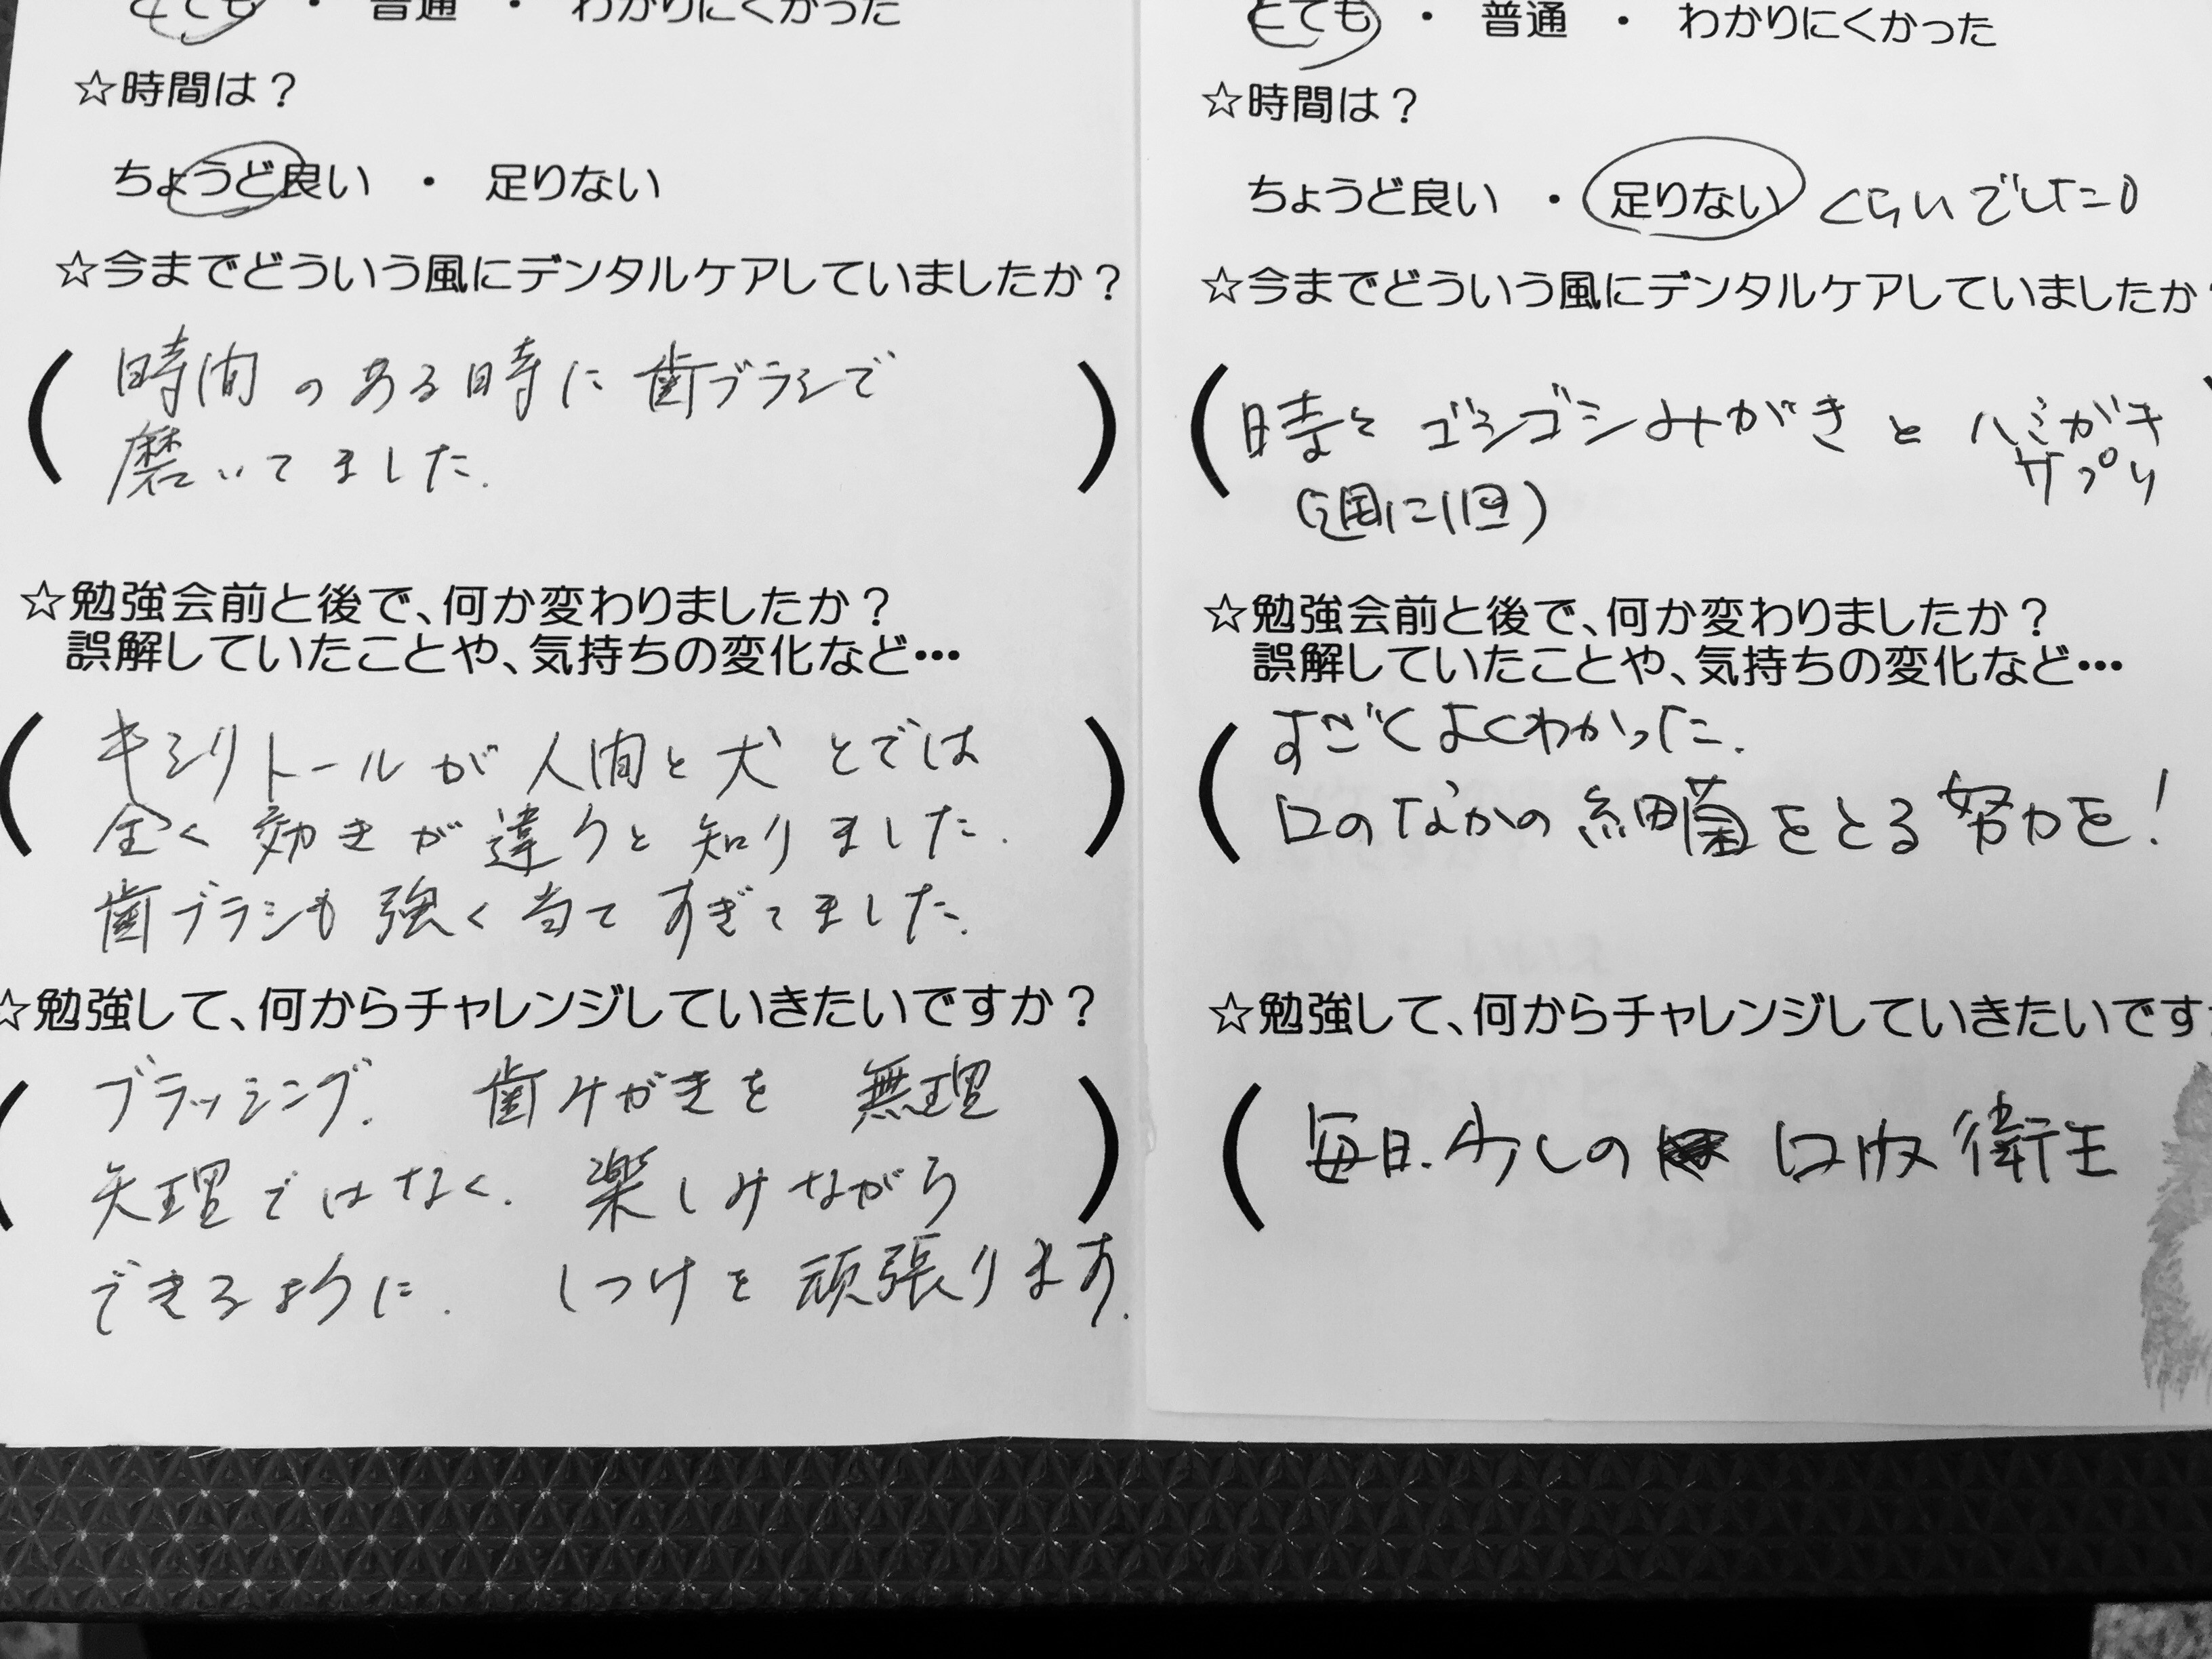 とても ・ 普通 ・ わかりにくかった
☆時間は？
ちょうど良い ・ 足りない
☆今までどういう風にデンタルケアしていましたか？
時間のある時に歯ブラシで
磨いてました.
☆勉強会前と後で、何か変わりましたか？
誤解していたことや、気持ちの変化など…
キシリトールが人間と犬とでは
全く効きが違うと知りました.
歯ブラシも強く当てすぎてました.
☆勉強して、何からチャレンジしていきたいですか？
ブラッシング. 歯みがきを無理
矢理ではなく. 楽しみながら
できるように. しつけを頑張ります.
とても ・ 普通 ・ わかりにくかった
☆時間は？
ちょうど良い ・ 足りない くらいでした。
☆今までどういう風にデンタルケアしていましたか
時々ゴシゴシみがきとハミガキ
サプリ
(週に1回)
☆勉強会前と後で、何か変わりましたか？
誤解していたことや、気持ちの変化など…
すごくよくわかった.
口のなかの細菌をとる努力を!
☆勉強して、何からチャレンジしていきたいです
毎日.少しの 口内 衛生